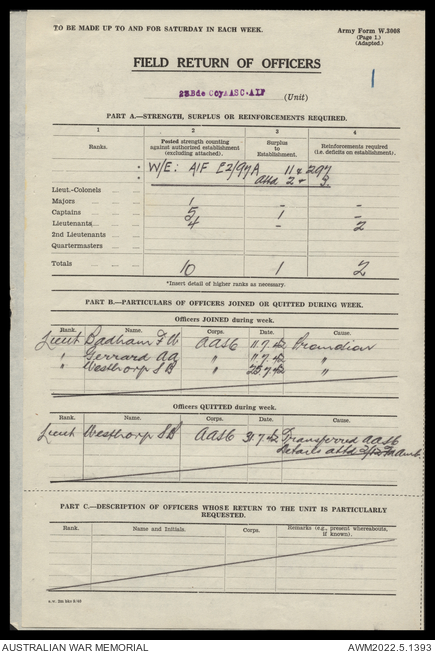 TO BE MADE UP TO AND FOR SATURDAY IN EACH WEEK.
Army Form W.3008
(Page 1.)
(Adapted.)
FIELD RETURN OF OFFICERS
1
Bde Coy AASC·AIF (Unit)
PART A.—STRENGTH, SURPLUS OR REINFORCEMENTS REQUIRED.
1 2 3 4
Ranks. Posted strength counting against authorised establishment (excluding attached). Surplus to Establishment. Reinforcements required (i.e. deficits on establishment).
* W/E: AIF 11 & 297
* attd 2 + 3.
Lieut.-Colonels
Majors 1 - -
Captains 5 1 -
Lieutenants 4 - 2
2nd Lieutenants
Quartermasters
Totals 10 1 2
*Insert detail of higher ranks as necessary.
PART B.—PARTICULARS OF OFFICERS JOINED OR QUITTED DURING WEEK.
Officers JOINED during week.
Rank. Name. Corps. Date. Cause.
Lieut Badham F W AASC 11.7.42 Promotion
" Gerrard AG " 11.7.42 "
" Westhorp SB " 25.7.42 "
Officers QUITTED during week.
Rank. Name. Corps. Date. Cause.
Lieut Westhorp SB AASC 31.7.42 Transferred AASC
Details attd Fd Amb.
PART C.—DESCRIPTION OF OFFICERS WHOSE RETURN TO THE UNIT IS PARTICULARLY REQUESTED.
Rank. Name and Initials. Corps. Remarks (e.g., present whereabouts, if known).
AUSTRALIAN WAR MEMORIAL
AWM2022.5.1393